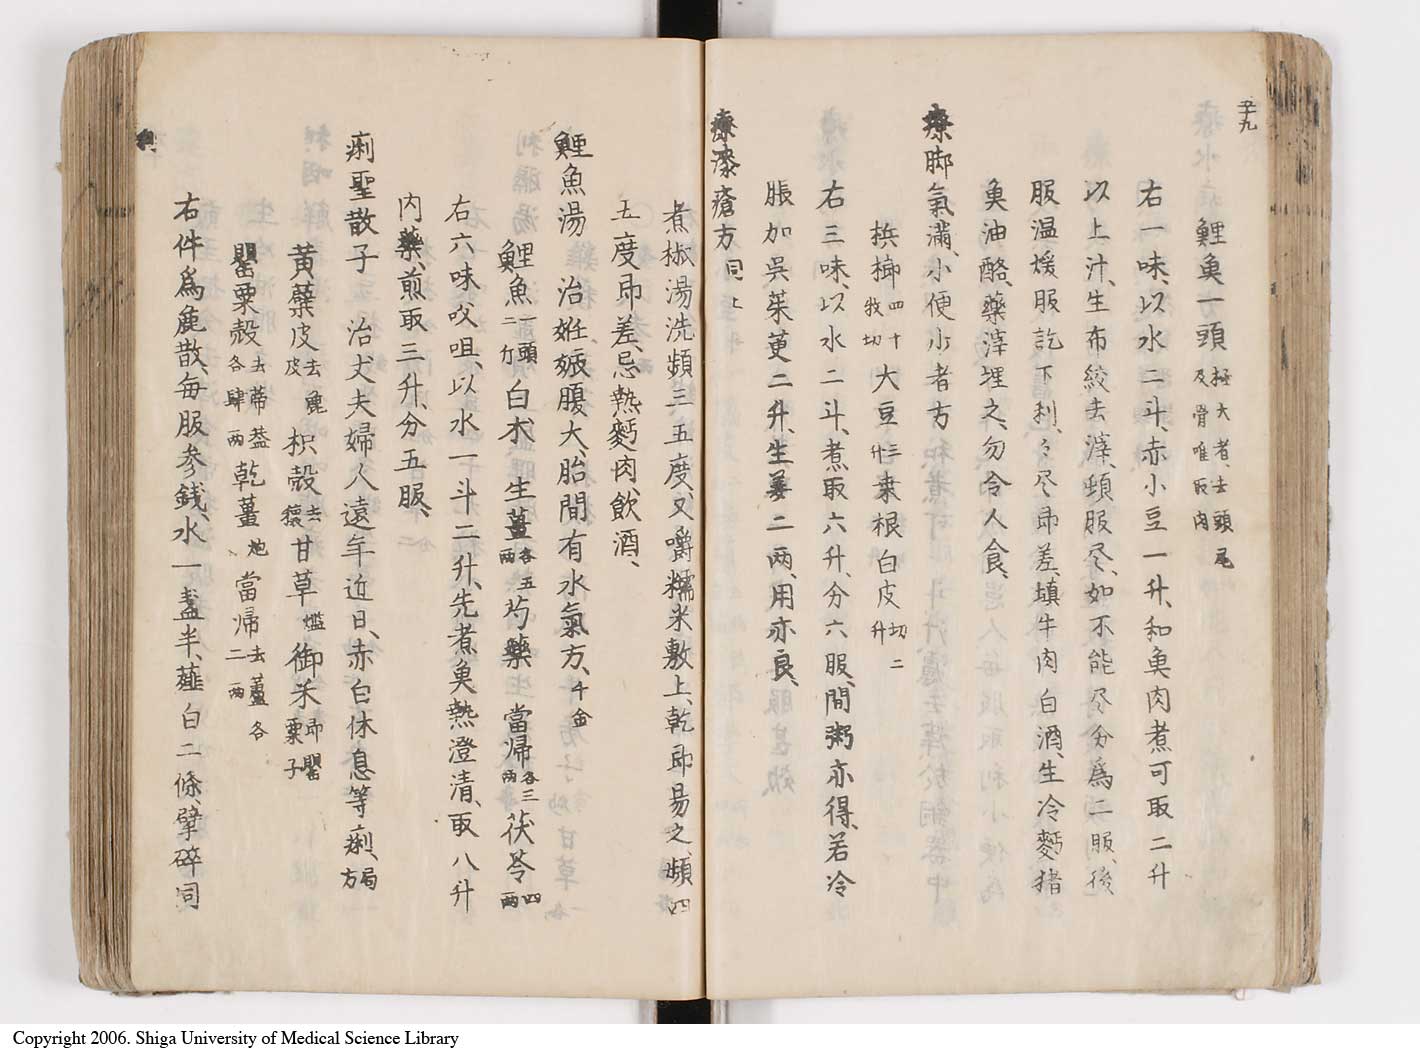 五九
鯉魚一頭 極大者、去頭尾及骨唯取肉
右一味、以水二斗、赤小豆一升、和魚肉煮、可取二升
以上汁、生布絞去滓、頓服尽、如不能尽、分為二服、後
服温煖、服訖下利、々尽即差、填牛肉白酒、生冷麪猪
魚油酪、薬滓埋之、勿令人食、
療脚氣滿、小便少者方
梹榔 四十枚切 大豆 三升 桒根白皮 切二升
右三味、以水二斗、煮取六升、分六服、間粥亦得、若冷
脹加呉茱萸二升、生姜二两、用亦良、
療漆瘡方 同上
煮椒湯洗頻三五度、又嚼糯米敷上、乾即易之、頻四
五度即差、忌熱麪肉、飲酒、
鯉魚湯 治妊娠腹大、胎間有水氣方、千金
鯉魚 一頭二斤 白朮 生薑 各五两 芍藥 當帰 各三两 茯苓 四两
右六味㕮咀、以水一斗二升、先煮魚熟澄清、取八升
内藥、煎取三升、分五服、
痢聖散子 治丈夫婦人遠年近日、赤白休息等痢、局方
黄蘗皮 去麁皮 枳殻 去穰 甘草 爁 御米 即罌粟子
罌粟殻 去蔕蓋各肆两 乾薑 炮 當帰 去蘆各二两
右件為麁散、毎服参銭、水一盞半、薤白二條、擘碎同